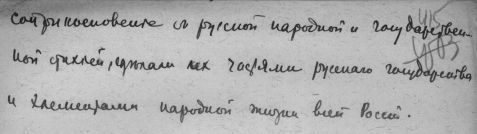 соприкосновение с русской народной и государствен-
ной стихией, сделали их частями русского государства
и элементами народной жизни всей России.